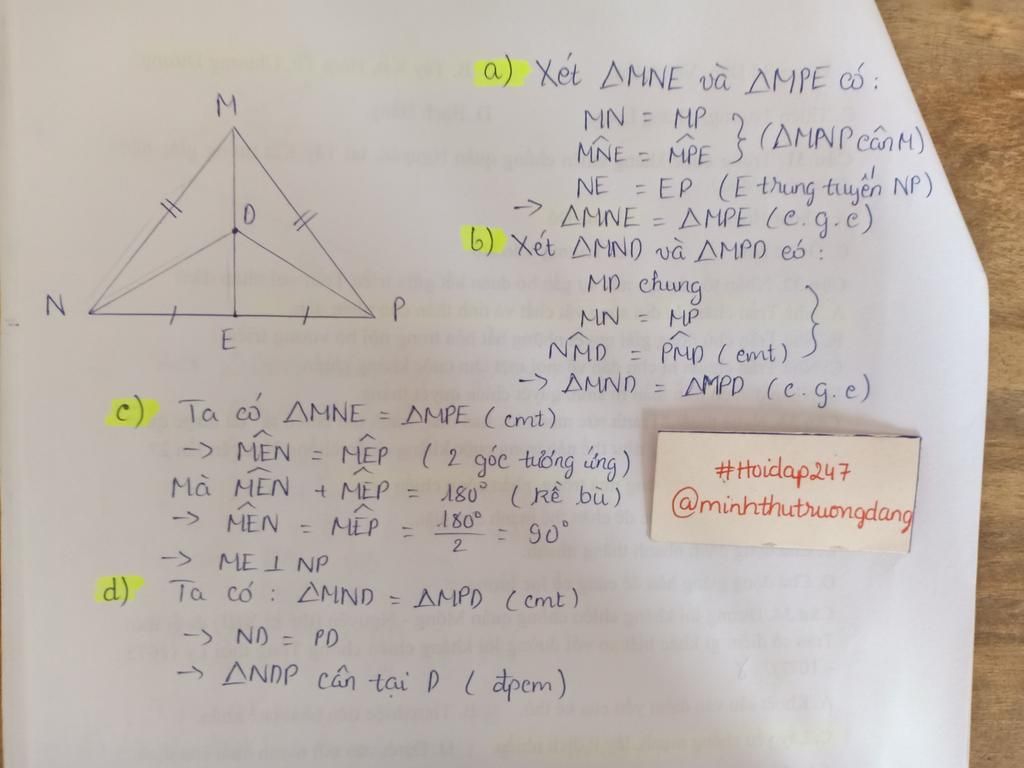 M
D
N
P
E
a) Xét ΔMNE và ΔMPE có:
MN = MP
M̂NE = M̂PE } (ΔMNP cân M)
NE = EP (E trung tuyến NP)
→ ΔMNE = ΔMPE (c.g.c)
b) Xét ΔMND và ΔMPD có:
MD chung
MN = MP
N̂MD = P̂MD (cmt) }
→ ΔMND = ΔMPD (c.g.c)
c) Ta có ΔMNE = ΔMPE (cmt)
→ MÊN = MÊP (2 góc tương ứng)
Mà MÊN + MÊP = 180° (kề bù)
→ MÊN = MÊP = 180°/2 = 90°
→ ME ⊥ NP
d) Ta có: ΔMND = ΔMPD (cmt)
→ ND = PD
→ ΔNDP cân tại D (đpcm)
#Hoidap247
@minhthutruongdang